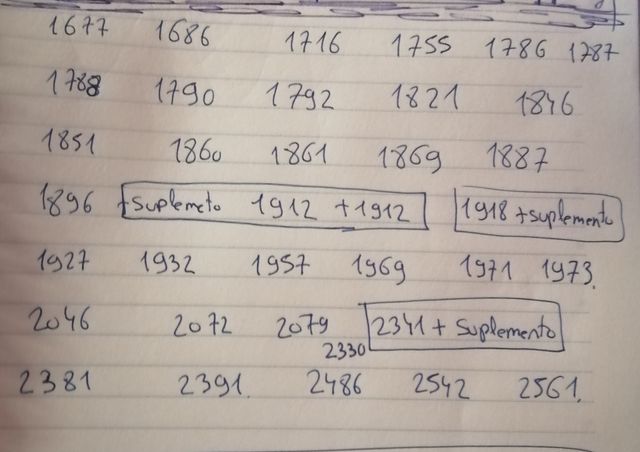 1677 1686 1716 1755 1786 1787
1788 1790 1792 1821 1846
1851 1860 1861 1869 1887
1896 +suplemeto 1912 +1912 1918 +suplemento
1927 1932 1957 1969 1971 1973.
2046 2072 2079 2341 + Suplemento
2330
2381 2391. 2486 2542 2561.